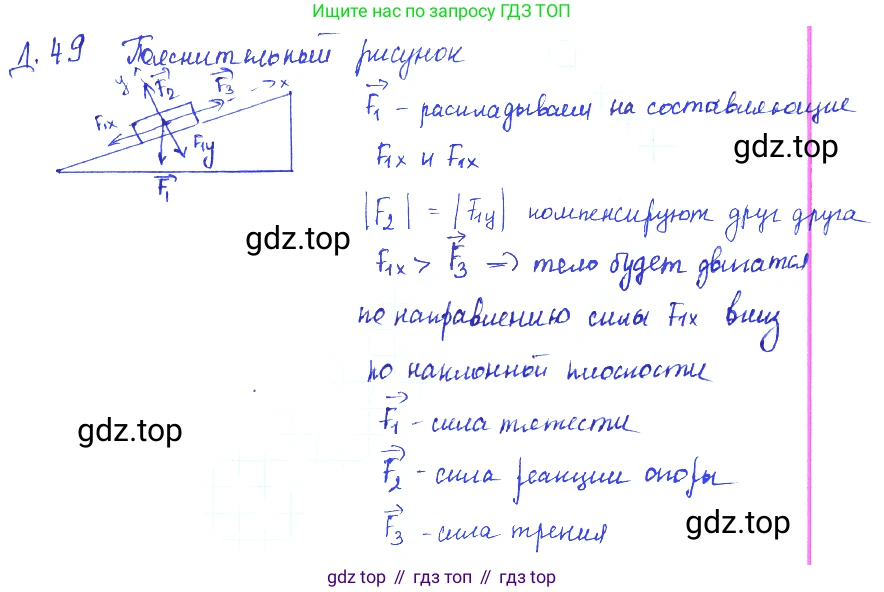 Ищите нас по запросу ГДЗ ТОП
Д. 49 Пояснительный рисунок
y F₂ F₃ x
F₁x F₁y
F₁
F₁ - раскладываем на составляющие
F₁x и F₁x
gdz.top
|F₂| = |F₁y| компенсируют друг друга
gdz.top
F₁x > F₃ => тело будет двигатся
по направлению силы F₁x вниз
по наклонной плоскости
F₁ - сила тяжести
gdz.top
F₂ - сила реакции опоры
F₃ - сила трения
gdz.top
gdz top // гдз топ // gdz top